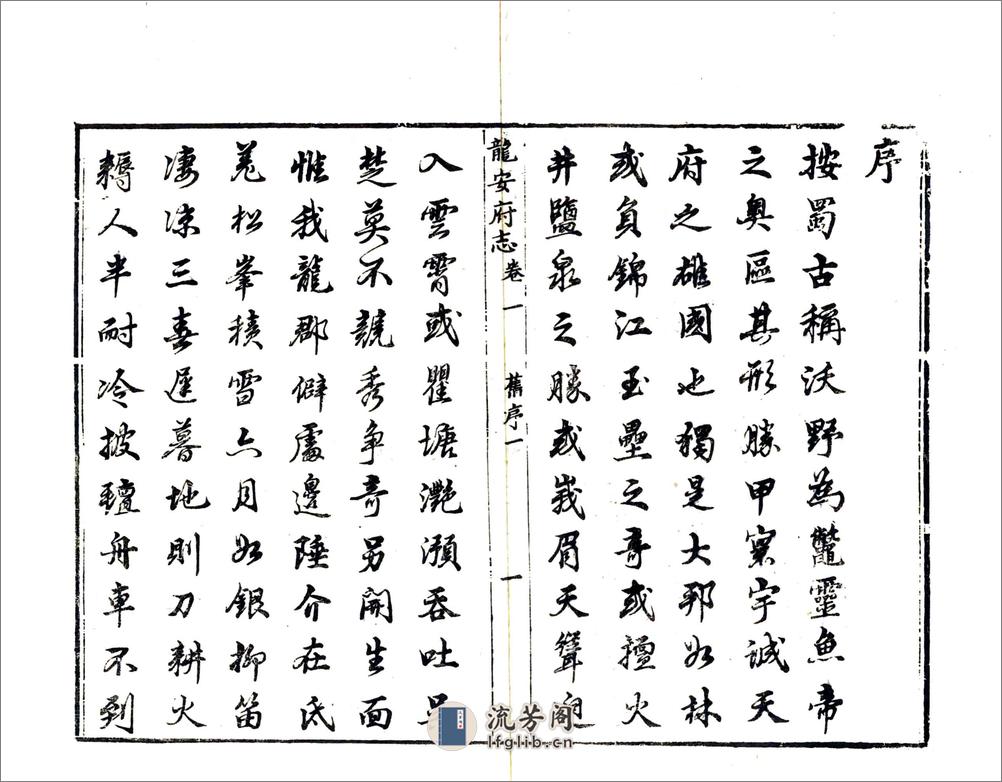 序
按蜀古稱沃野為鼈靈魚帝
之奧區其形勝甲寰宇誠天
府之雄國也獨是大邦如林
或負錦江玉壘之奇或擅火
井鹽泉之勝或峩眉天聳迥
龍安府志 卷一 舊序一 一
入雲霄或瞿塘灔澦吞吐吳
楚莫不競秀争奇另開生面
惟我龍郡僻處邊陲介在氐
羌松峯積雪六月如銀柳笛
凄凉三春遲暮地則刀耕火
耨人半耐冷披氊舟車不到
流芳阁
lfglib.cn